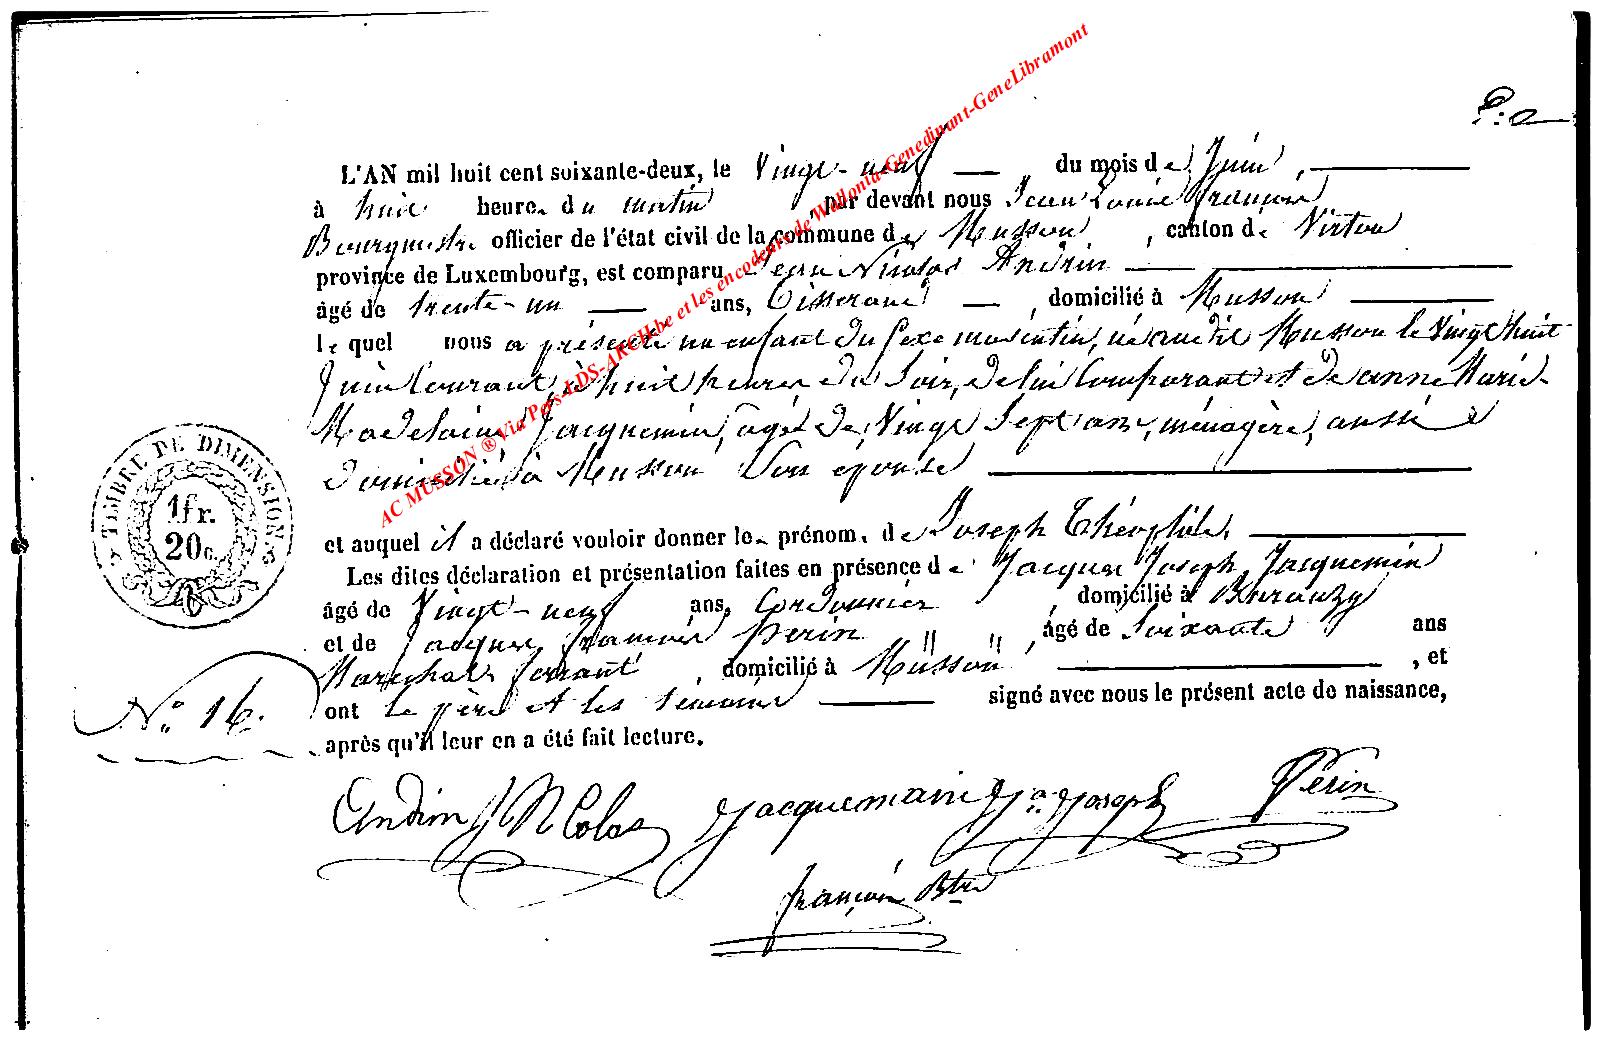 L'AN mil huit cent soixante-deux, le Vingt-neuf du mois de Juin,
à huit heure. du matin, par devant nous Jean Louis françois
Bourgmestre officier de l'état civil de la commune de Musson, canton de Virton
province de Luxembourg, est comparu Jean Nicolas Andrin
âgé de trente-un ans, Tisserand, domicilié à Musson
lequel nous a présenté un enfant du sexe masculin, né audit Musson le Vingt huit
Juin Courant, à huit heures du Soir, de lui Comparant et de anne Marie
Madelaine Jacquemin, agée de Vingt Sept ans, ménagère, aussi
domiciliée à Musson Son épouse
et auquel il a déclaré vouloir donner les prénom. de Joseph Théophile.
Les dites déclaration et présentation faites en présence de Jacques Joseph Jacquemin
âgé de Vingt-neuf ans, Cordonnier, domicilié à Baranzy
et de Jacques françois Perin âgé de Soixante ans
Maréchal ferrant, domicilié à Musson, et
ont le père et les témoins signé avec nous le présent acte de naissance,
après qu'il leur en a été fait lecture.
TIMBRE DE DIMENSION
1fr.
20c.
N.° 16.
Andrin J Nicolas Jacquemain Ja. Joseph Périn
françois Btre
AC MUSSON ® Via Pers-LDS-ARCH.be et les encodeurs de Wallonia-Genedinant-GeneLibramont